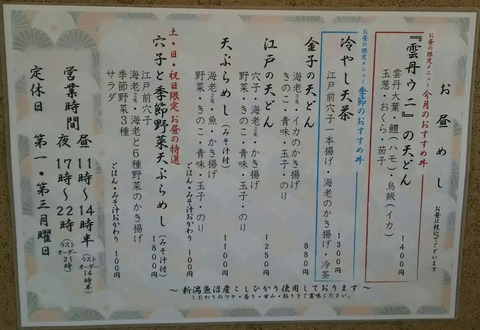 お昼めし
お昼は税込でございます
お昼の限定メニュー 今月のおすすめ丼
『雲丹ウニ』の天どん
雲丹大葉・鱧(ハモ)・烏賊(イカ)
玉葱・おくら・茄子
1400円
お昼の限定メニュー 季節のおすすめ丼
冷やし天茶
1300円
江戸前穴子一本揚げ・海老のかき揚げ・冷茶
金子の天どん
880円
海老2尾・イカのかき揚げ
きのこ・青味・玉子・のり
江戸の天どん
1250円
穴子・海老2尾・かき揚げ
野菜・きのこ・青味・玉子・のり
天ぷらめし(みそ汁付)
1100円
海老2尾・魚・かき揚げ
野菜・きのこ・青味・玉子・のり
ごはん・みそ汁おかわり 100円
土・日・祝日限定お昼の特選
穴子と季節野菜天ぷらめし(みそ汁付)
1800円
江戸前穴子
海老と6種野菜のかき揚げ
季節野菜3種
サラダ
ごはん・みそ汁おかわり 100円
営業時間 昼 11時〜14時半(ラストオーダー14時)
夜 17時〜22時(ラストオーダー21時)
定休日 第一・第三月曜日
〜新潟魚沼産こしひかり使用しております〜
こだわりのツヤ・香り・甘み・粘りをご賞味ください。